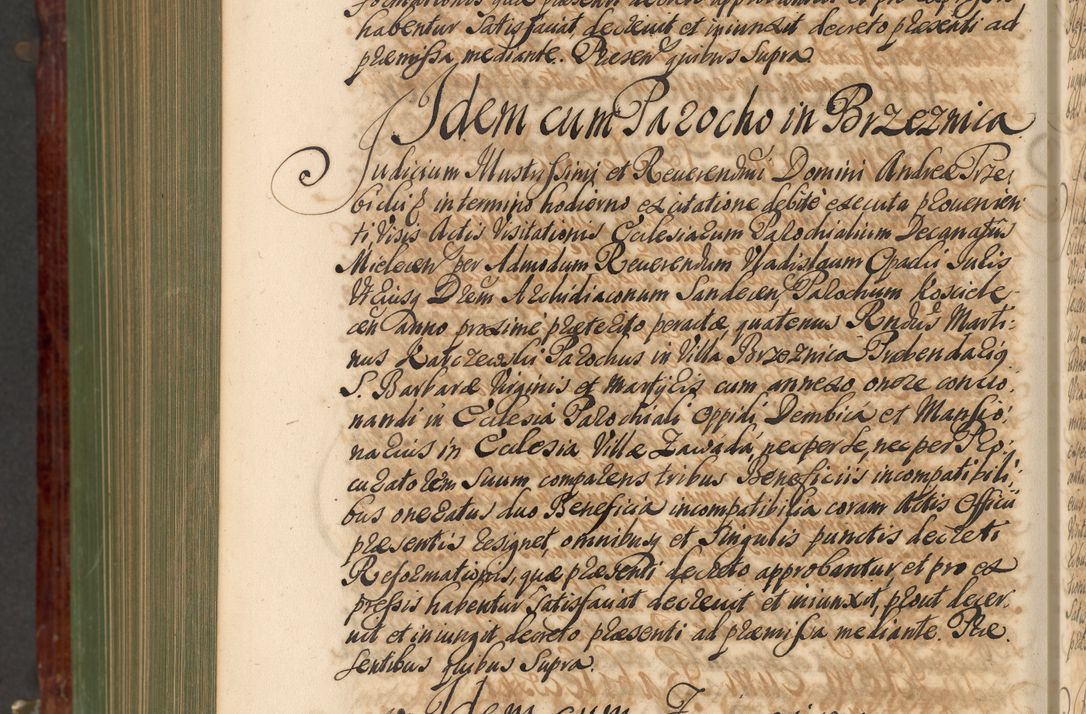 habentur Satisfaciat, decreuit et iniunxit decreto præsenti ad
præmissa mediante. Præsen quibus Supra
Idem cum Parocho in Brzeznica
Judicium Illustrissimi et Reuerendiss Domini Andreæ Trze,
bicki in termino hodierno ex citatione debite executa proueni en
ti, Visis Actis Visitationis Ecclesiarum Parochialium Decanatus
Mielecen per Admodum Reuerendum Vladislaum Opacki Juris
Vtriusq Drem Archidiaconum Sandecen, Parochum Kosciele,
cen Anno proxime præterito peractæ, quatenus Rndus Marti,
nus Karczewski Parochus in Villa Brzeznica Præbendarig
S. Barbaræ Virginis et Martyris cum annexo onere concio,
nandi in Ecclesia Parochiali Oppidi Dembica et Mansio,
narius in Ecclesia Villæ Zawada, nec per se, nec per Pro,
curatorem Suum comparens tribus Beneficiis incompatibili,
bus oneratus duo Beneficia incompatibilia coram Actis Officii
præsentis resignet, omnibusq et Singulis punctis decreti
Reformationis, quæ præsenti decreto approbantur, et pro ex
pressis habentur Satisfaciat decreuit et iniunxit, prout decer,
nit et iniungit, decreto præsenti ad præmissa mediante. Præ,
sentibus quibus Supra.
Idem cum